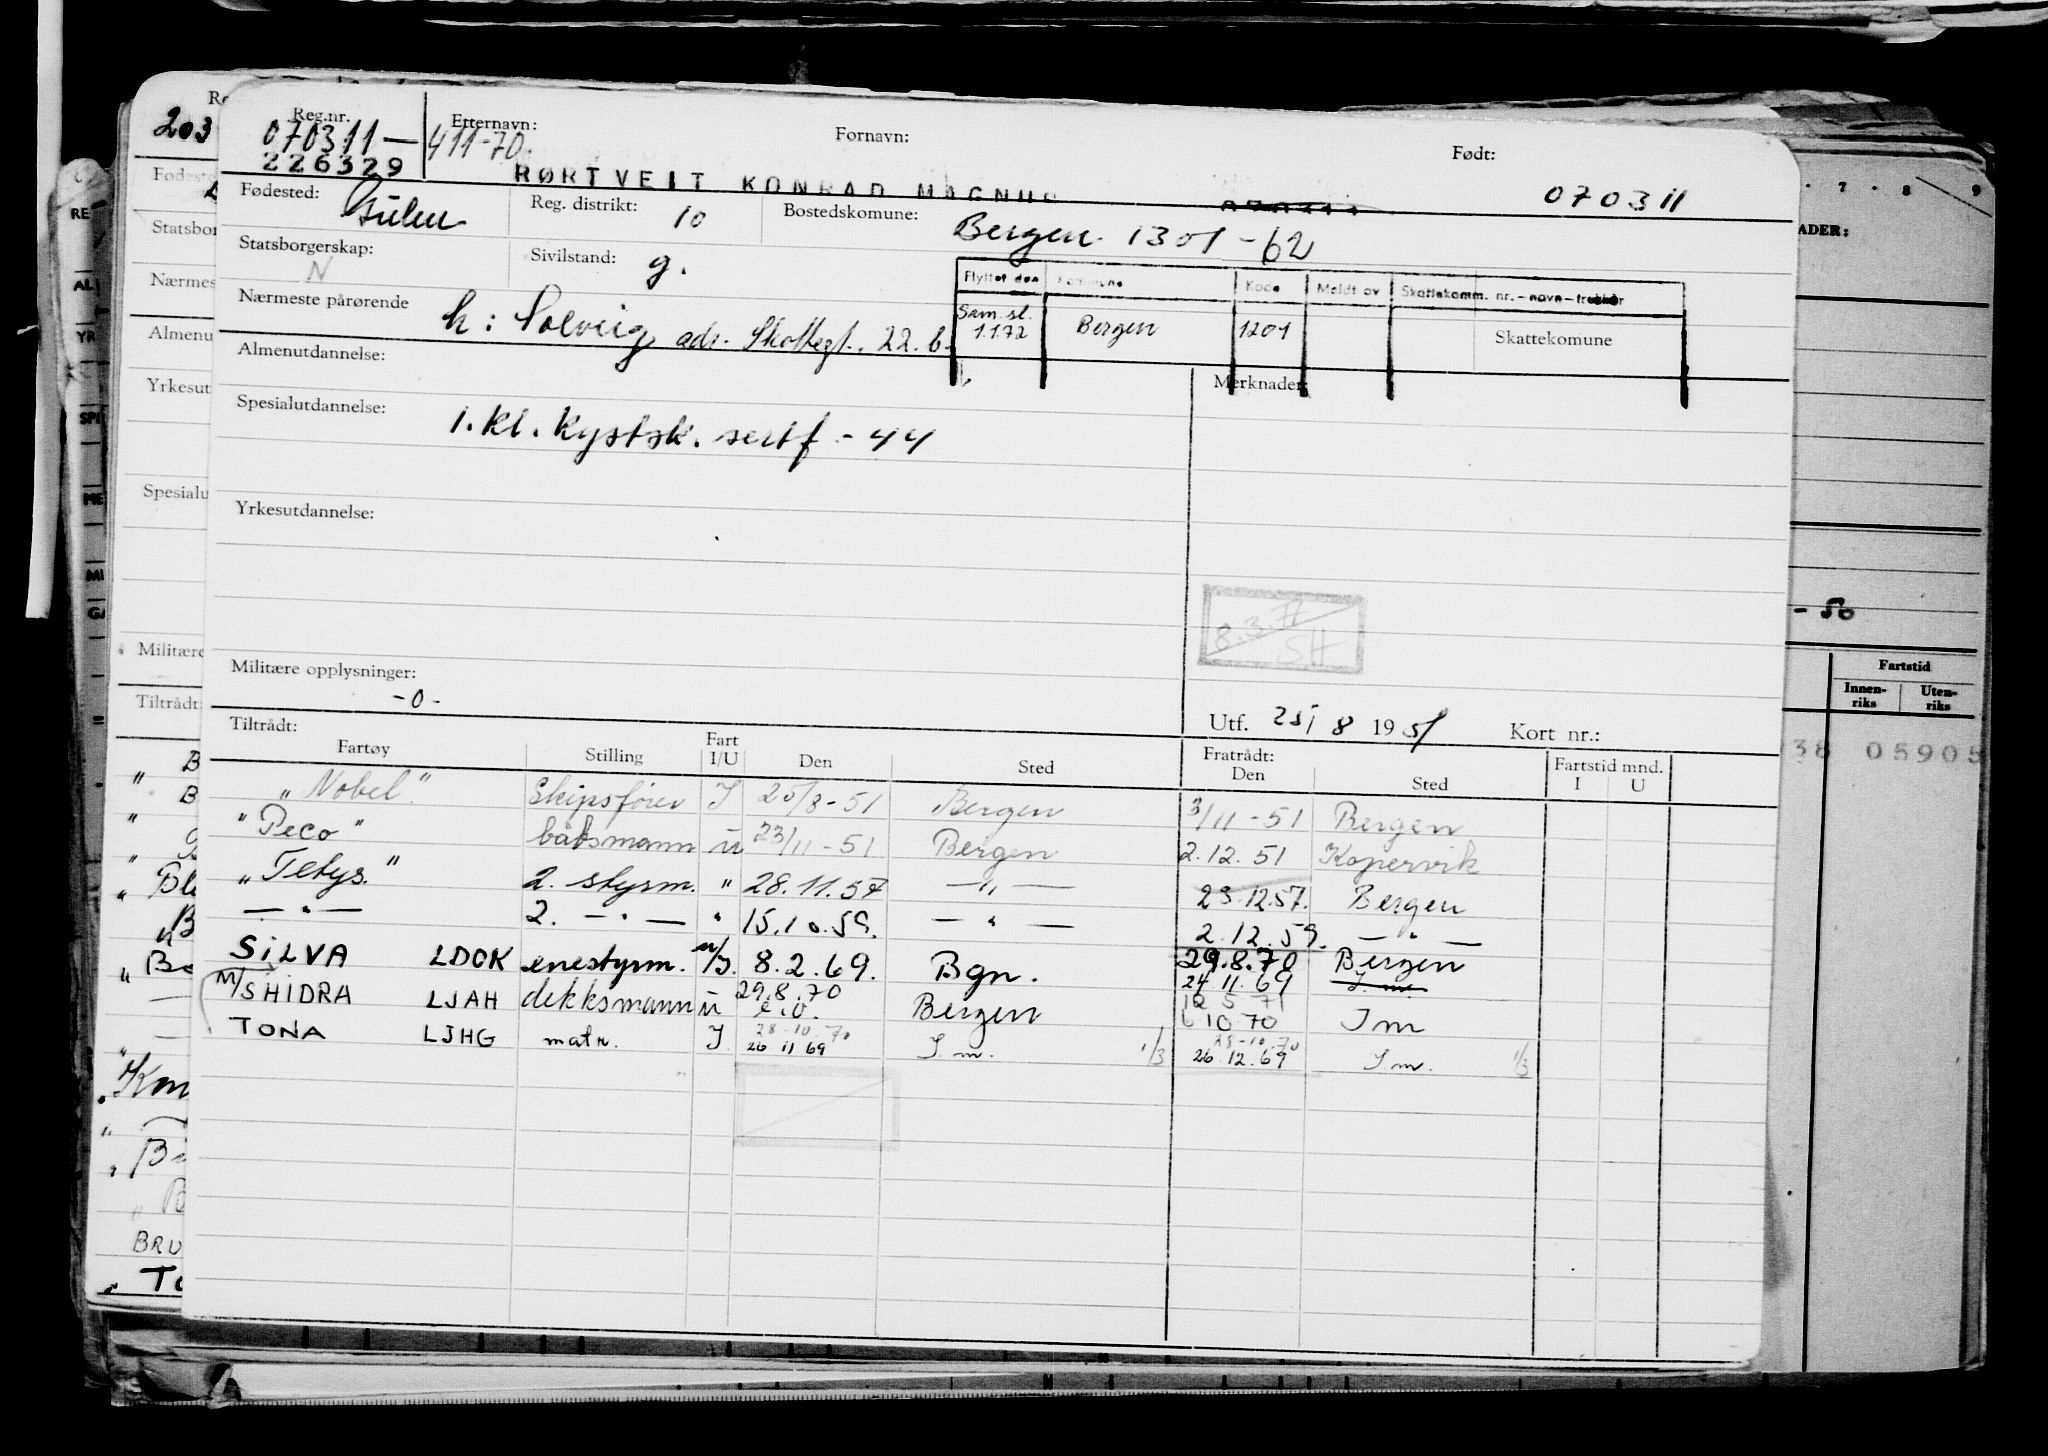 Reg.nr. Etternavn: Fornavn: Født:
070311— 411-70.
226329 RØRTVEIT KONRAD MAGNUS 070311
Fødested: Gulen Reg. distrikt: 10 Bostedskomune: Bergen 1301 -62
Statsborgerskap: N Sivilstand: g.
Flyttet den Kommune Kode Meldt av Skattekomm. nr. - navn - trekkår
Nærmeste pårørende h: Solveig adr. Skottegt. 22.b.
Sam.sl. 1.1.72 Bergen 1201 Skattekomune
Almenutdannelse: Merknader:
Spesialutdannelse: 1. kl. kystsk. sertf - 44
Yrkesutdannelse:
8.3.71
SH
Militære opplysninger:
-0-
Utf. 25/ 8 1951 Kort nr.:
Tiltrådt: Fratrådt: Fartstid mnd.
Fartøy Stilling Fart I/U Den Sted Den Sted I U
"Nobel" Skipsfører I 25/8-51 Bergen 3/11-51 Bergen
"Peco" båtsmann u 23/11-51 Bergen 2.12.51 Kopervik
"Tetys." 2. styrm. " 28.11.57 —"— 23.12.57. Bergen
—"— 2. —"— " 15.10.59. —"— 2.12.59. —"—
SILVA LDOK enestyrm. u/I. 8.2.69. Bgn. 29.8.70 Bergen
24.11.69 I.m.
M/SHIDRA LJAH dekksmann u 29.8.70 e.o. Bergen 12 5 71
6 10 70 I m
TONA LJHG matr. I 28-10-70 28-10-70
26 11 69 I.m. 1/3 26.12.69 I m. 1/3
Fartstid
Innen-riks Uten-riks
38 05905
- 50
ADER:
7 8 9
203
Statsbor
Nærmes
Almenu
Yrkesut
Spesialu
Militære
Tiltrådt:
BRU